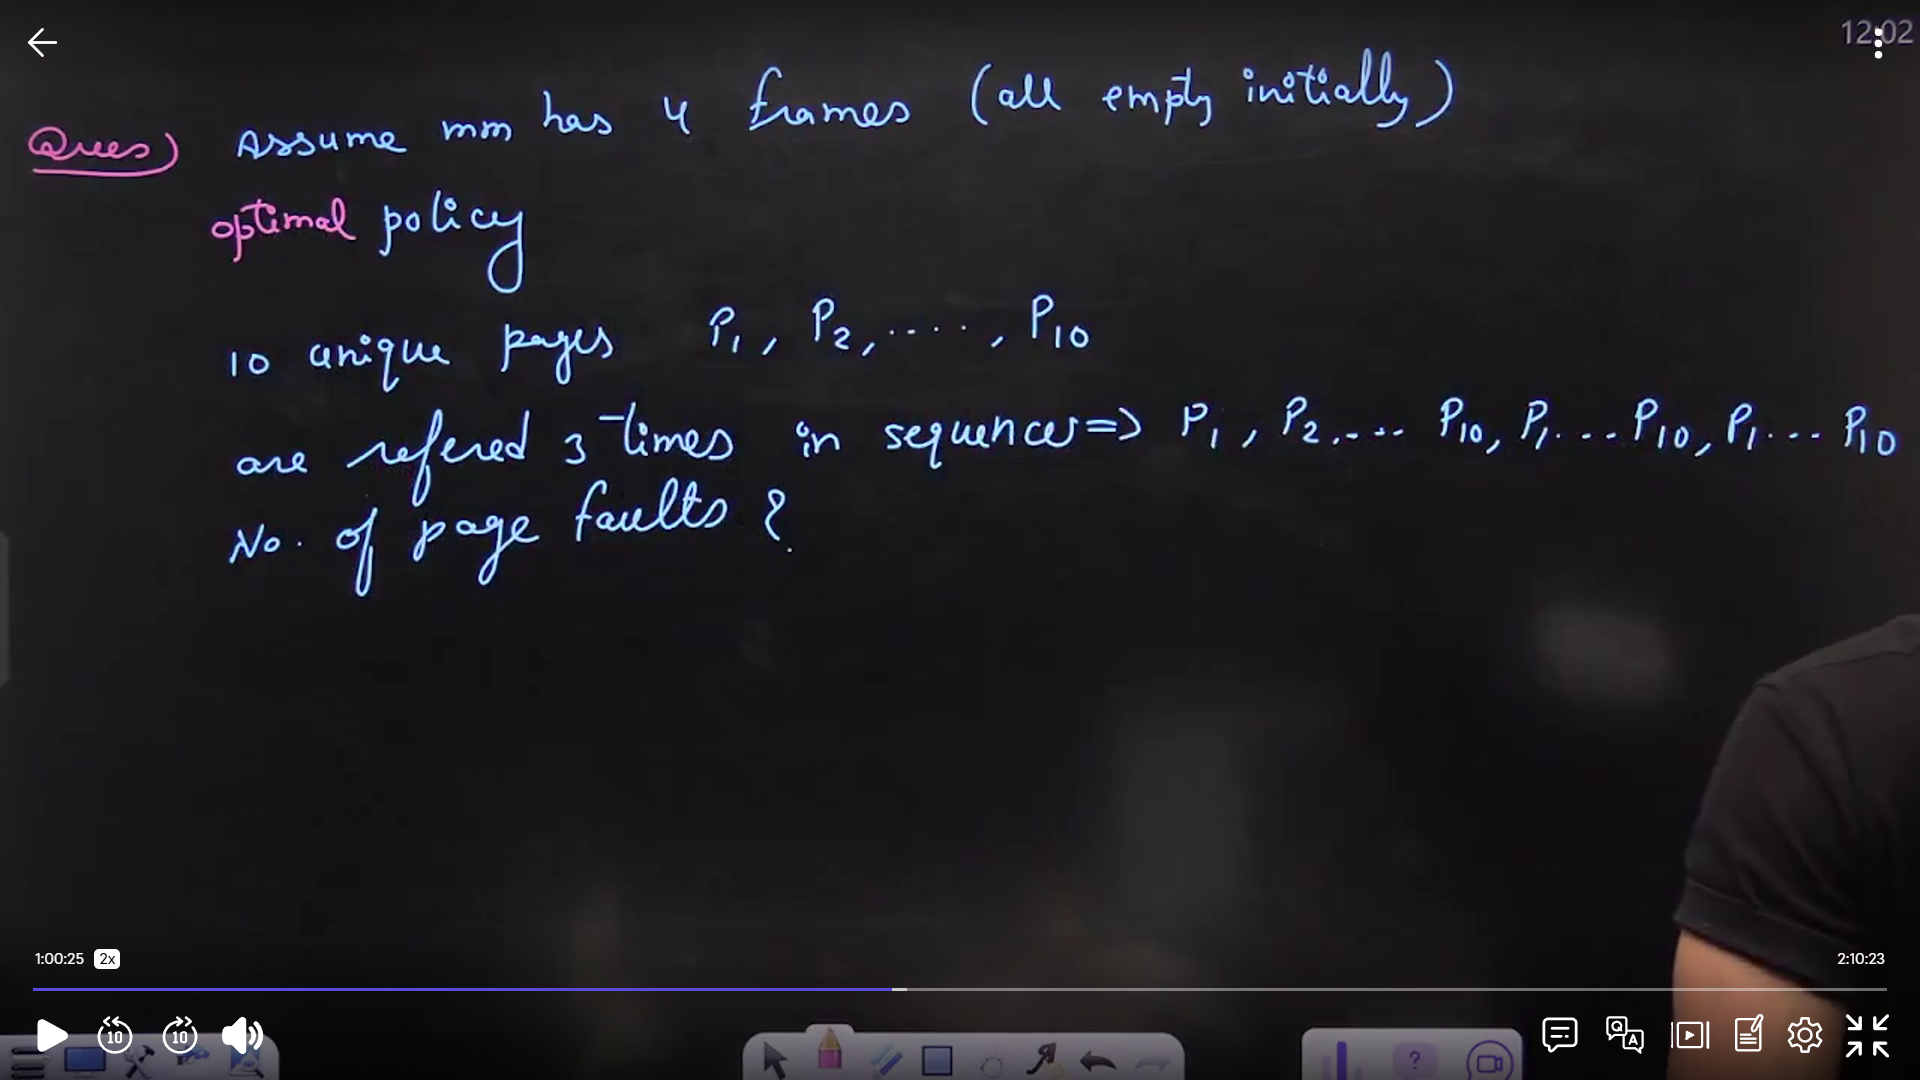 12:02
Ques) Assume mm has 4 frames (all empty initially)
optimal policy
10 unique pages P1, P2, ...., P10
are refered 3 times in sequence => P1, P2.... P10, P1... P10, P1... P10
No. of page faults ?
1:00:25 2x 2:10:23
10 10
Q A
?